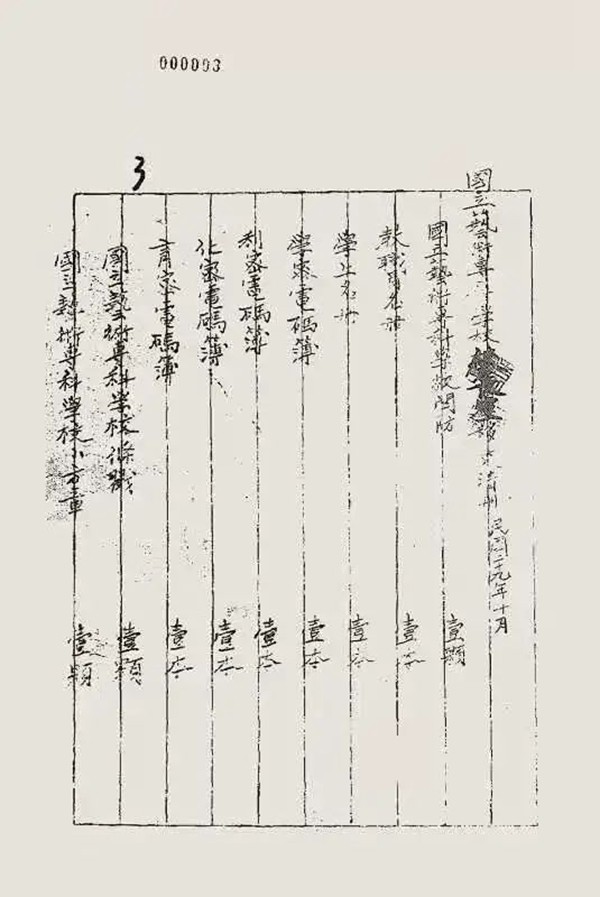 000003
3
國立藝術專科學校 清册 民國二十九年十月
國立藝術專科學校関防 壹顆
教職員名册 壹本
學生名册 壹本
學密電碼簿 壹本
制密電碼簿 壹本
化密電碼簿 壹本
育密電碼簿 壹本
國立藝術專科學校條戳 壹顆
國立藝術專科學校小方章 壹顆